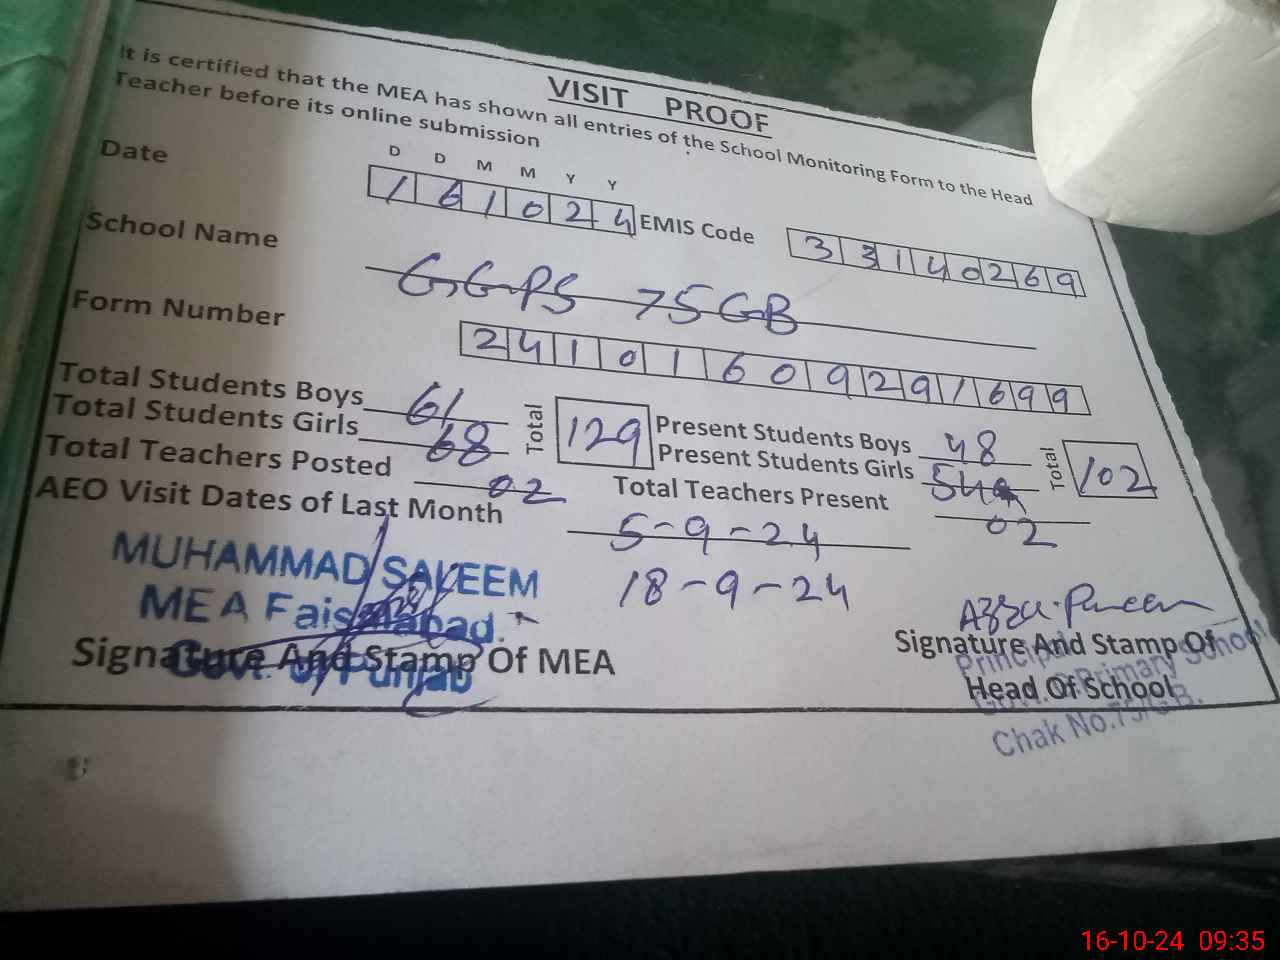 VISIT PROOF
It is certified that the MEA has shown all entries of the School Monitoring Form to the Head
Teacher before its online submission
D D M M Y Y
Date 161024 EMIS Code 33140269
School Name GGPS 75 GB
Form Number 24101609291699
Total Students Boys 61 Total 129 Present Students Boys 48 Total 102
Total Students Girls 68 Present Students Girls 54
Total Teachers Posted 02 Total Teachers Present 02
AEO Visit Dates of Last Month 5-9-24
18-9-24
MUHAMMAD SALEEM
MEA Faisalabad.
Govt. of Punjab
Signature And Stamp Of MEA
Signature And Stamp Of
Head Of School
Principal
Primary School
Chak No.75/G.B.
16-10-24 09:35